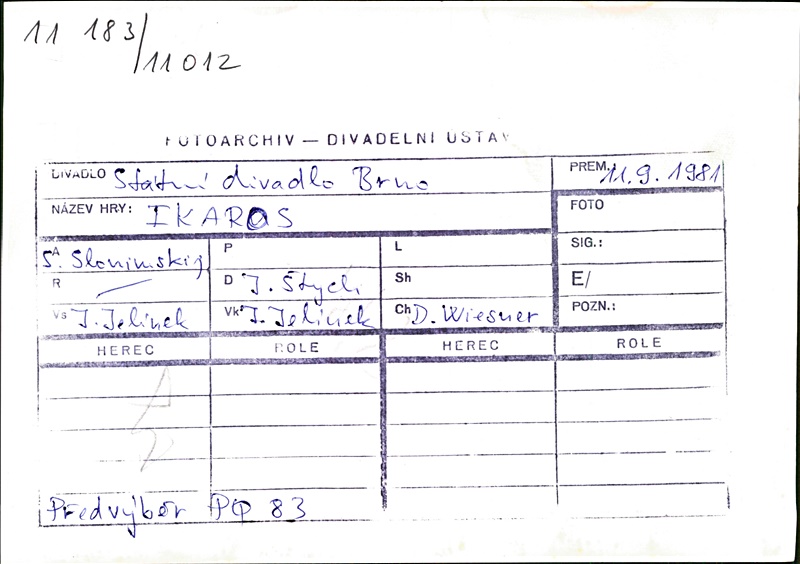 11 183/
11012
FOTOARCHIV — DIVADELNÍ ÚSTAV
DIVADLO Státní divadlo Brno
PREM. 11.9.1981
NÁZEV HRY: IKAROS
FOTO
A S. Slonimskij
P
L
SIG.:
R
D J. Štych
Sh
E/
Vs J. Jelínek
Vk J. Jelínek
Ch D. Wiesner
POZN.:
HEREC ROLE HEREC ROLE
Předvýběr PQ 83